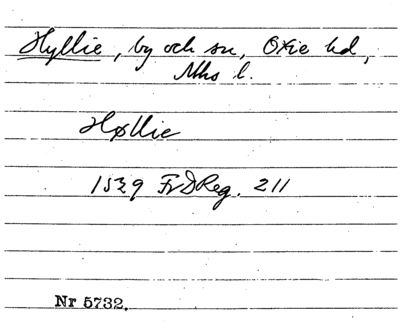 Hyllie, by och sn, Oxie hd,
Mhs l.
Høllie
1539 FrDReg. 211
Nr 5732.